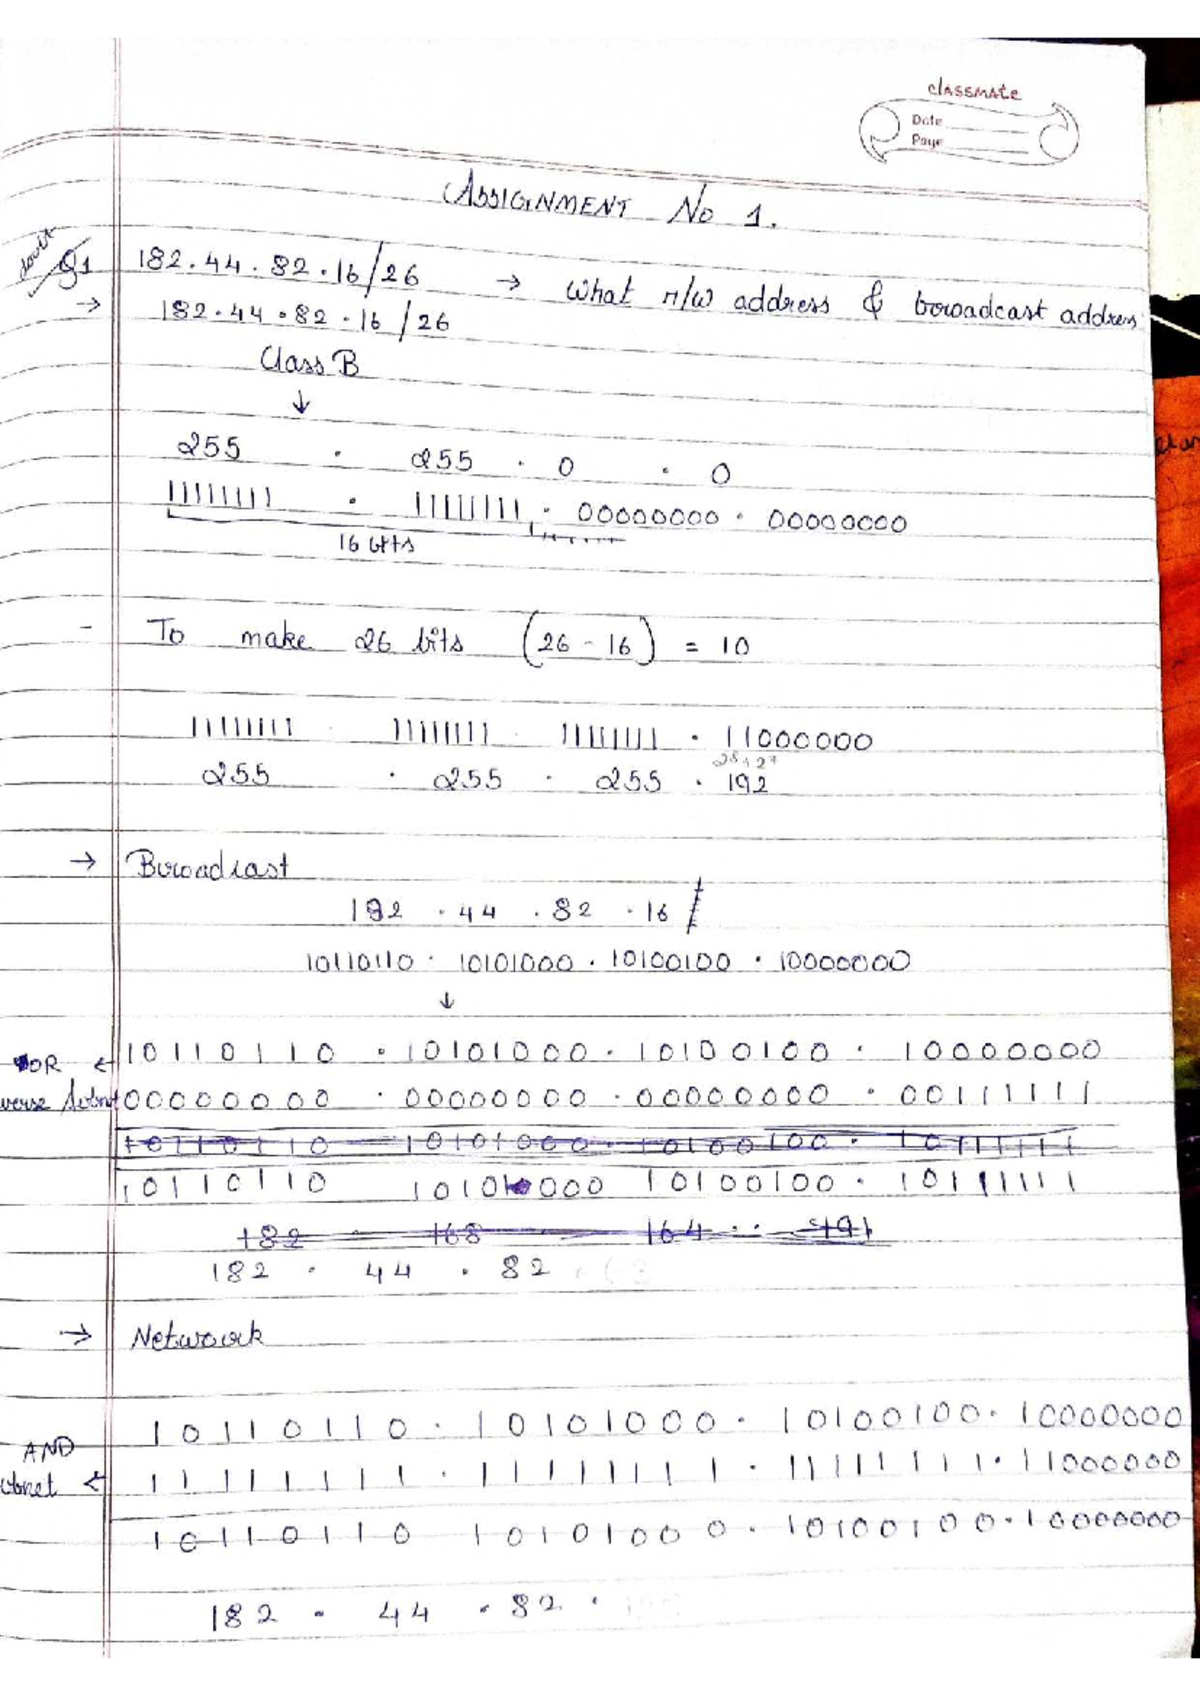 classmate
Date
Page
ASSIGNMENT No 1.
Q1 182.44.82.16/26 → What n/w address & broadcast address
→ 182.44.82.16/26
Class B
↓
255 . 255 . 0 . 0
11111111 . 11111111 . 00000000 . 00000000
16 bits
- To make 26 bits (26 - 16) = 10
11111111 . 11111111 . 11111111 . 11000000
255 . 255 . 255 . 192
→ Broadcast
182 . 44 . 82 . 16
10110110 . 10101000 . 10100100 . 10000000
↓
OR ← 10110110 . 10101000 . 10100100 . 10000000
verse Subnet 00000000 . 00000000 . 00000000 . 00111111
10110110 10101000 . 10100100 . 10111111
10110110 10101000 10100100 . 10111111
182 . 168 164 . 191
182 . 44 . 82 .
→ Network
10110110 . 10101000 . 10100100 . 10000000
AND
ubnet ← 11111111 . 11111111 . 11111111 . 11000000
10110110 10101000 . 10100100 . 10000000
182 . 44 . 82 .